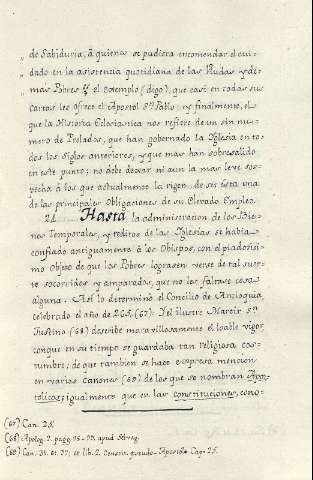 de Sabiduria, á quienes se pudiera encomendar el cui-
dado en la asistencia quotidiana de las Viudas y de-
mas Pobres: el Exemplo (digo), que casi en todas sus
cartas les ofrece el Apostol Sn. Pablo: y finalmente, el
que la Historia Eclesiastica nos refiere de un sin nu-
mero de Prelados, que han gobernado la Iglesia en to-
dos los Siglos anteriores, y que mas han sobresalido
en este punto; no debe dexar ni aun la mas leve sos-
pecha á los que actualmente la rigen, de ser ésta una
de las principales Obligaciones de su Elevado Empleo.
21. Hasta la administracion de los Bie-
nes Temporales, y reditos de las Iglesias se habia
confiado antiguamente á los Obispos, con el piadosisi-
mo Objeto de que los Pobres lograsen verse de tal suer-
te socorridos y amparados, que no les faltase cosa
alguna. Así lo determinó el Concilio de Antioquia,
celebrado el año de 265. (67): Y el ilustre Martir Sn.
Justino (68) describe maravillosamente el loable vigor,
con que en su tiempo se guardaba tan religiosa cos-
tumbre; de que tambien se hace expresa mencion
en varios Canones (69) de los que se nombran Apos-
tolicos; igualmente que en las constituciones, cono-
(67) Can. 25.
(68) Apolog. 2. pagg.
(69) Can. 39. et lib. 2. Constit. Apostol. Cap. 25.